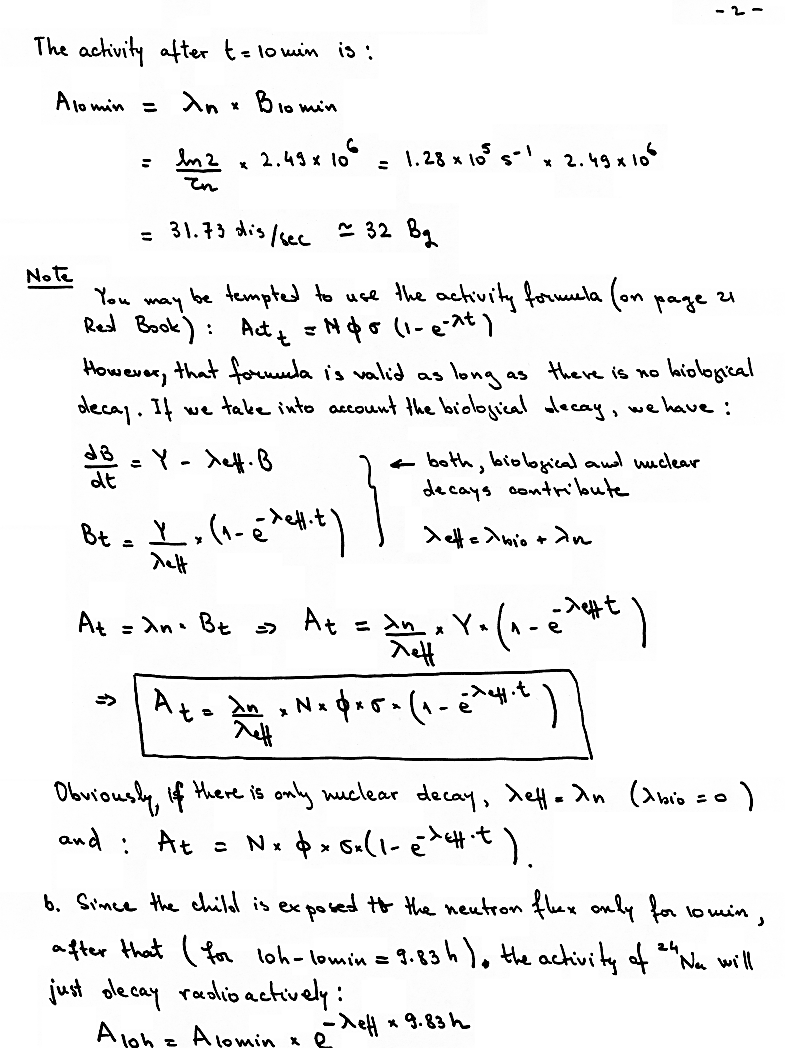 - 2 -
The activity after t = 10 min is :
A10 min = λn × B10 min
= ln2/τn × 2.49 × 10⁶ = 1.28 × 10⁵ s⁻¹ × 2.49 × 10⁶
= 31.73 dis/sec ≃ 32 Bq
Note
You may be tempted to use the activity formula (on page 21
Red Book) : Act t = N φ σ (1 - e^-λt)
However, that formula is valid as long as there is no biological
decay. If we take into account the biological decay, we have :
dB/dt = Y - λeff · B } ← both, biological and nuclear
decays contribute
Bt = Y/λeff × (1 - e^-λeff·t) λeff = λbio + λn
At = λn · Bt ⇒ At = λn/λeff × Y × (1 - e^-λeff t)
⇒ At = λn/λeff × N × φ × σ × (1 - e^-λeff·t)
Obviously, if there is only nuclear decay, λeff = λn (λbio = 0)
and : At = N × φ × σ × (1 - e^-λeff·t).
b. Since the child is exposed to the neutron flux only for 10 min,
after that (for 10h - 10min = 9.83 h). the activity of ²⁴Na will
just decay radioactively :
A10h = A10min × e^-λeff × 9.83h